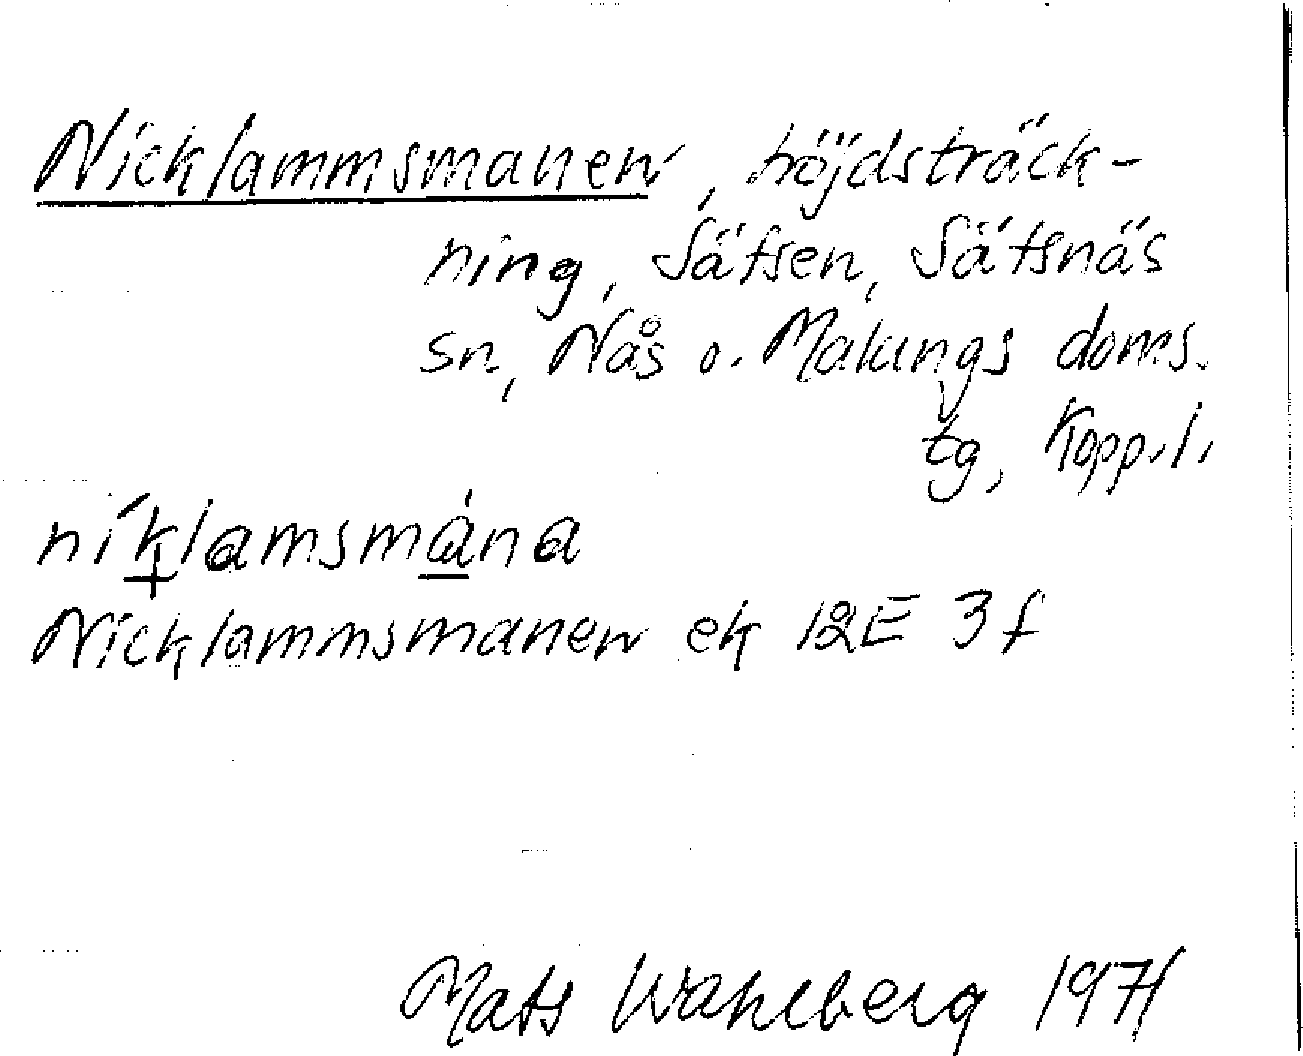 Nicklammsmanen, höjdsträck-
ning, Sätsen, Sätsnäs
sn, Nås o. Malungs doms.
tg, Kopp. l.
níklamsmàna
Nicklammsmanen ek 12E 3f
Mats Wahlberg 1971